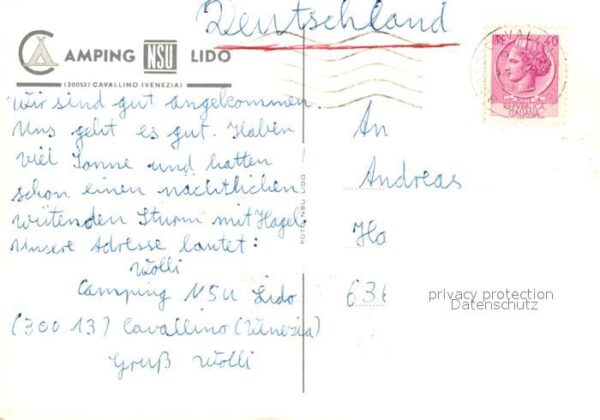 Deutschland
CAMPING NSU LIDO
(30013) CAVALLINO (VENEZIA)
LIRE 40
REPVBBLICA
ITALIANA
Wir sind gut angekommen.
Uns geht es gut. Haben
viel Sonne und hatten
schon einen nächtlichen
wütenden Sturm mit Hagel.
Unsere Adresse lautet:
Wolli
Camping NSU Lido
(300 13) Cavallino (Venezia)
Gruß Wolli
FOTO NSU LIDO
An
Andreas
Ha
636
privacy protection
Datenschutz